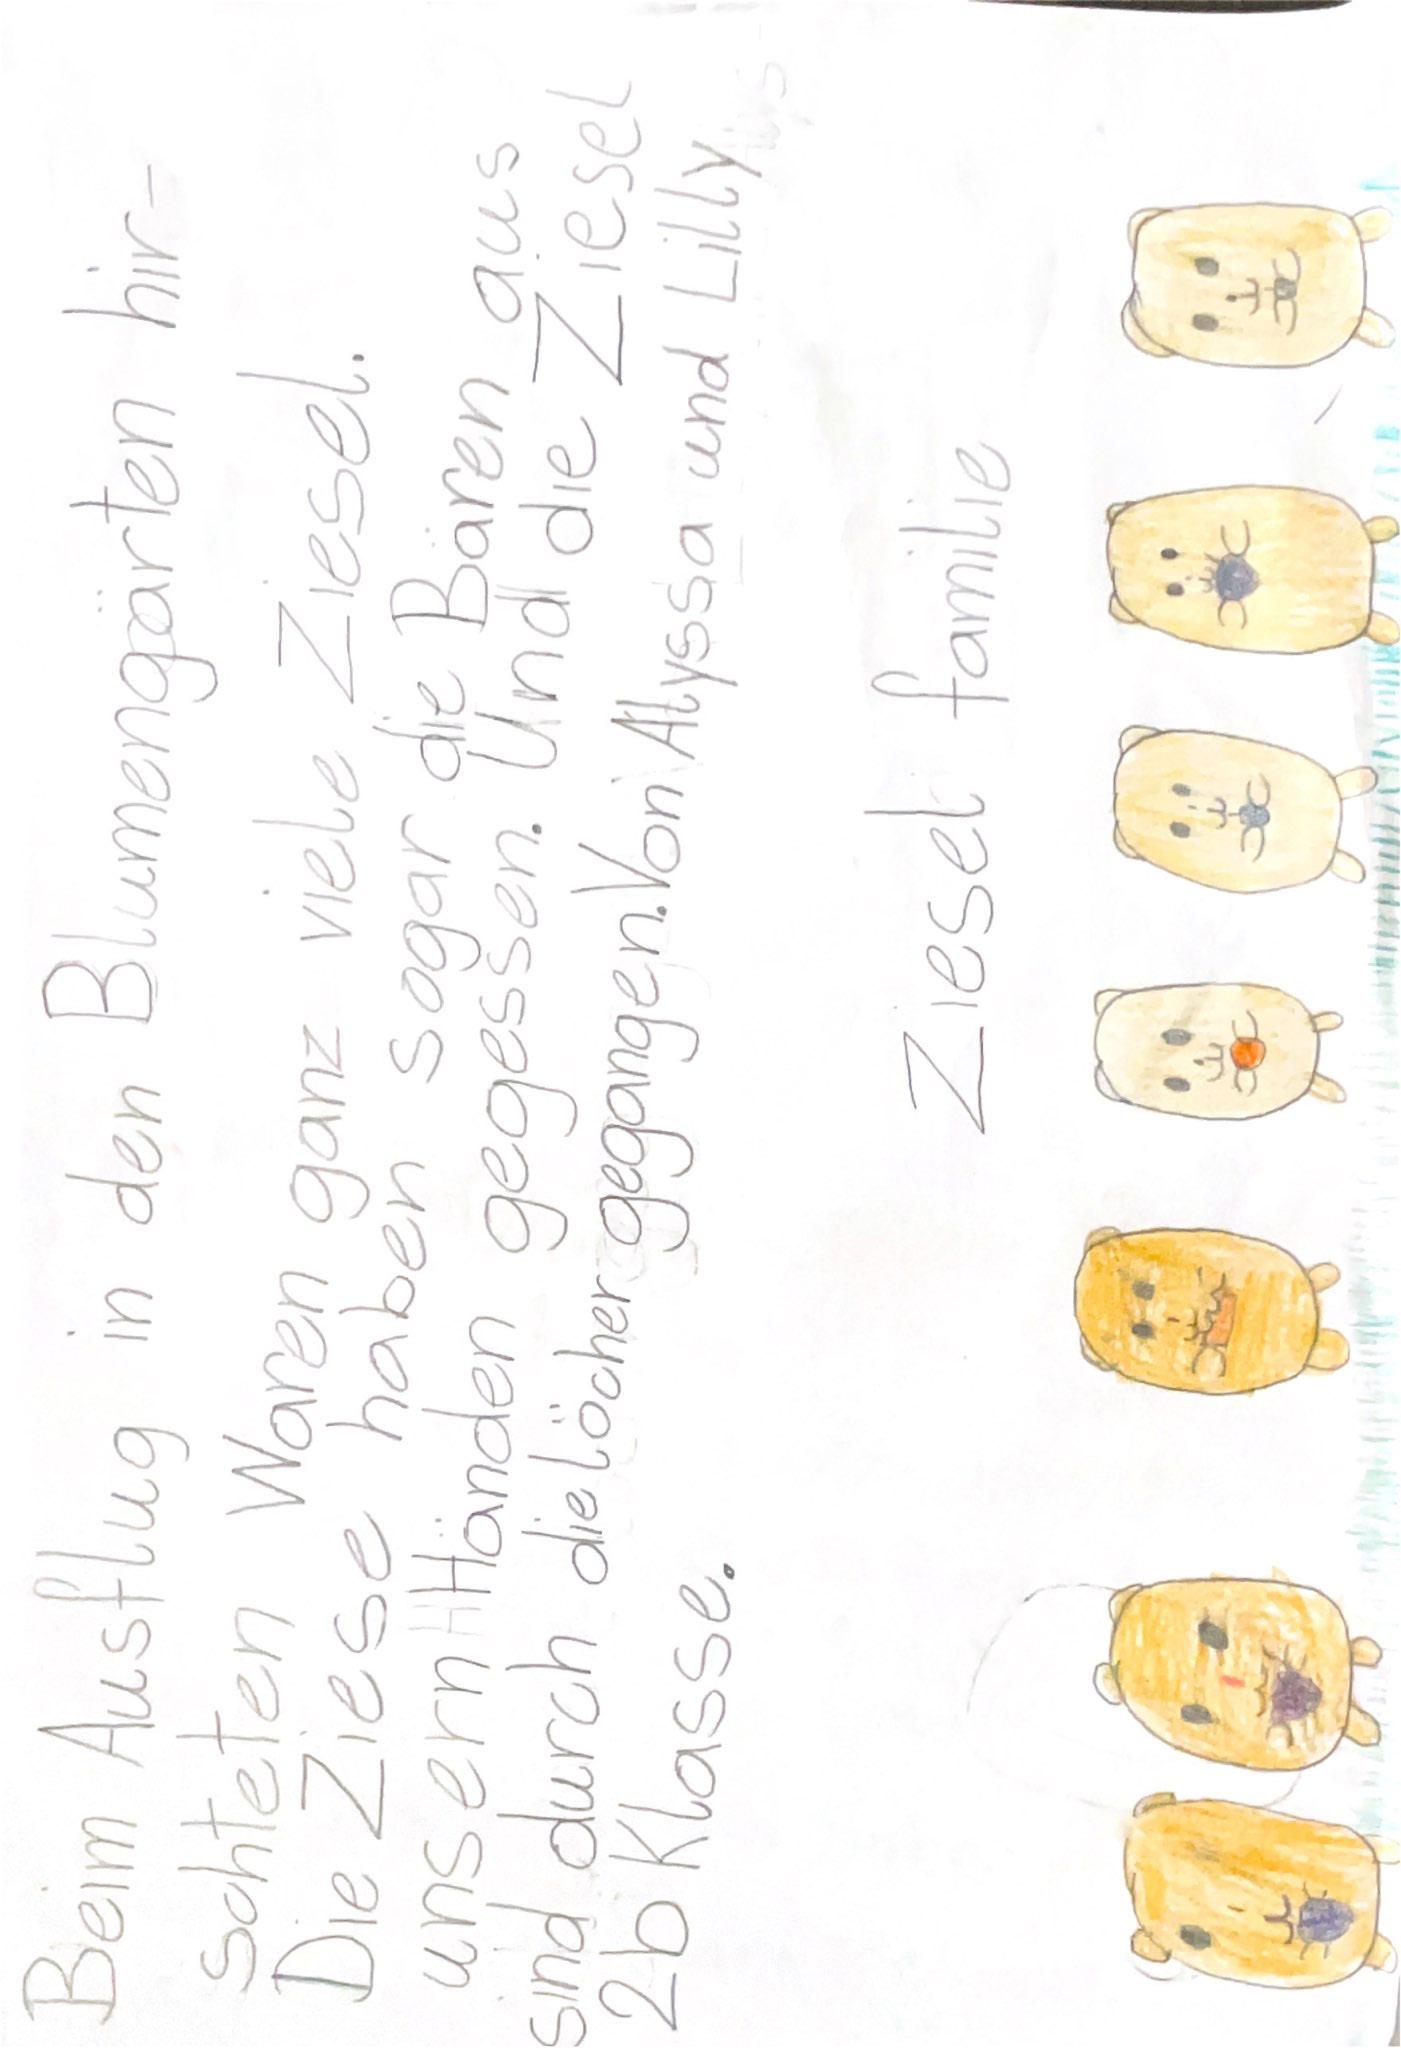 Beim Ausflug in den Blumengärten hir-
schteten Waren ganz viele Ziesel.
Die Ziese haben sogar die Bären aus
unsern Händen gegessen. Und die Ziesel
sind durch die Löcher gegangen. Von Alyssa und Lilly
2b Klasse.
Ziesel familie